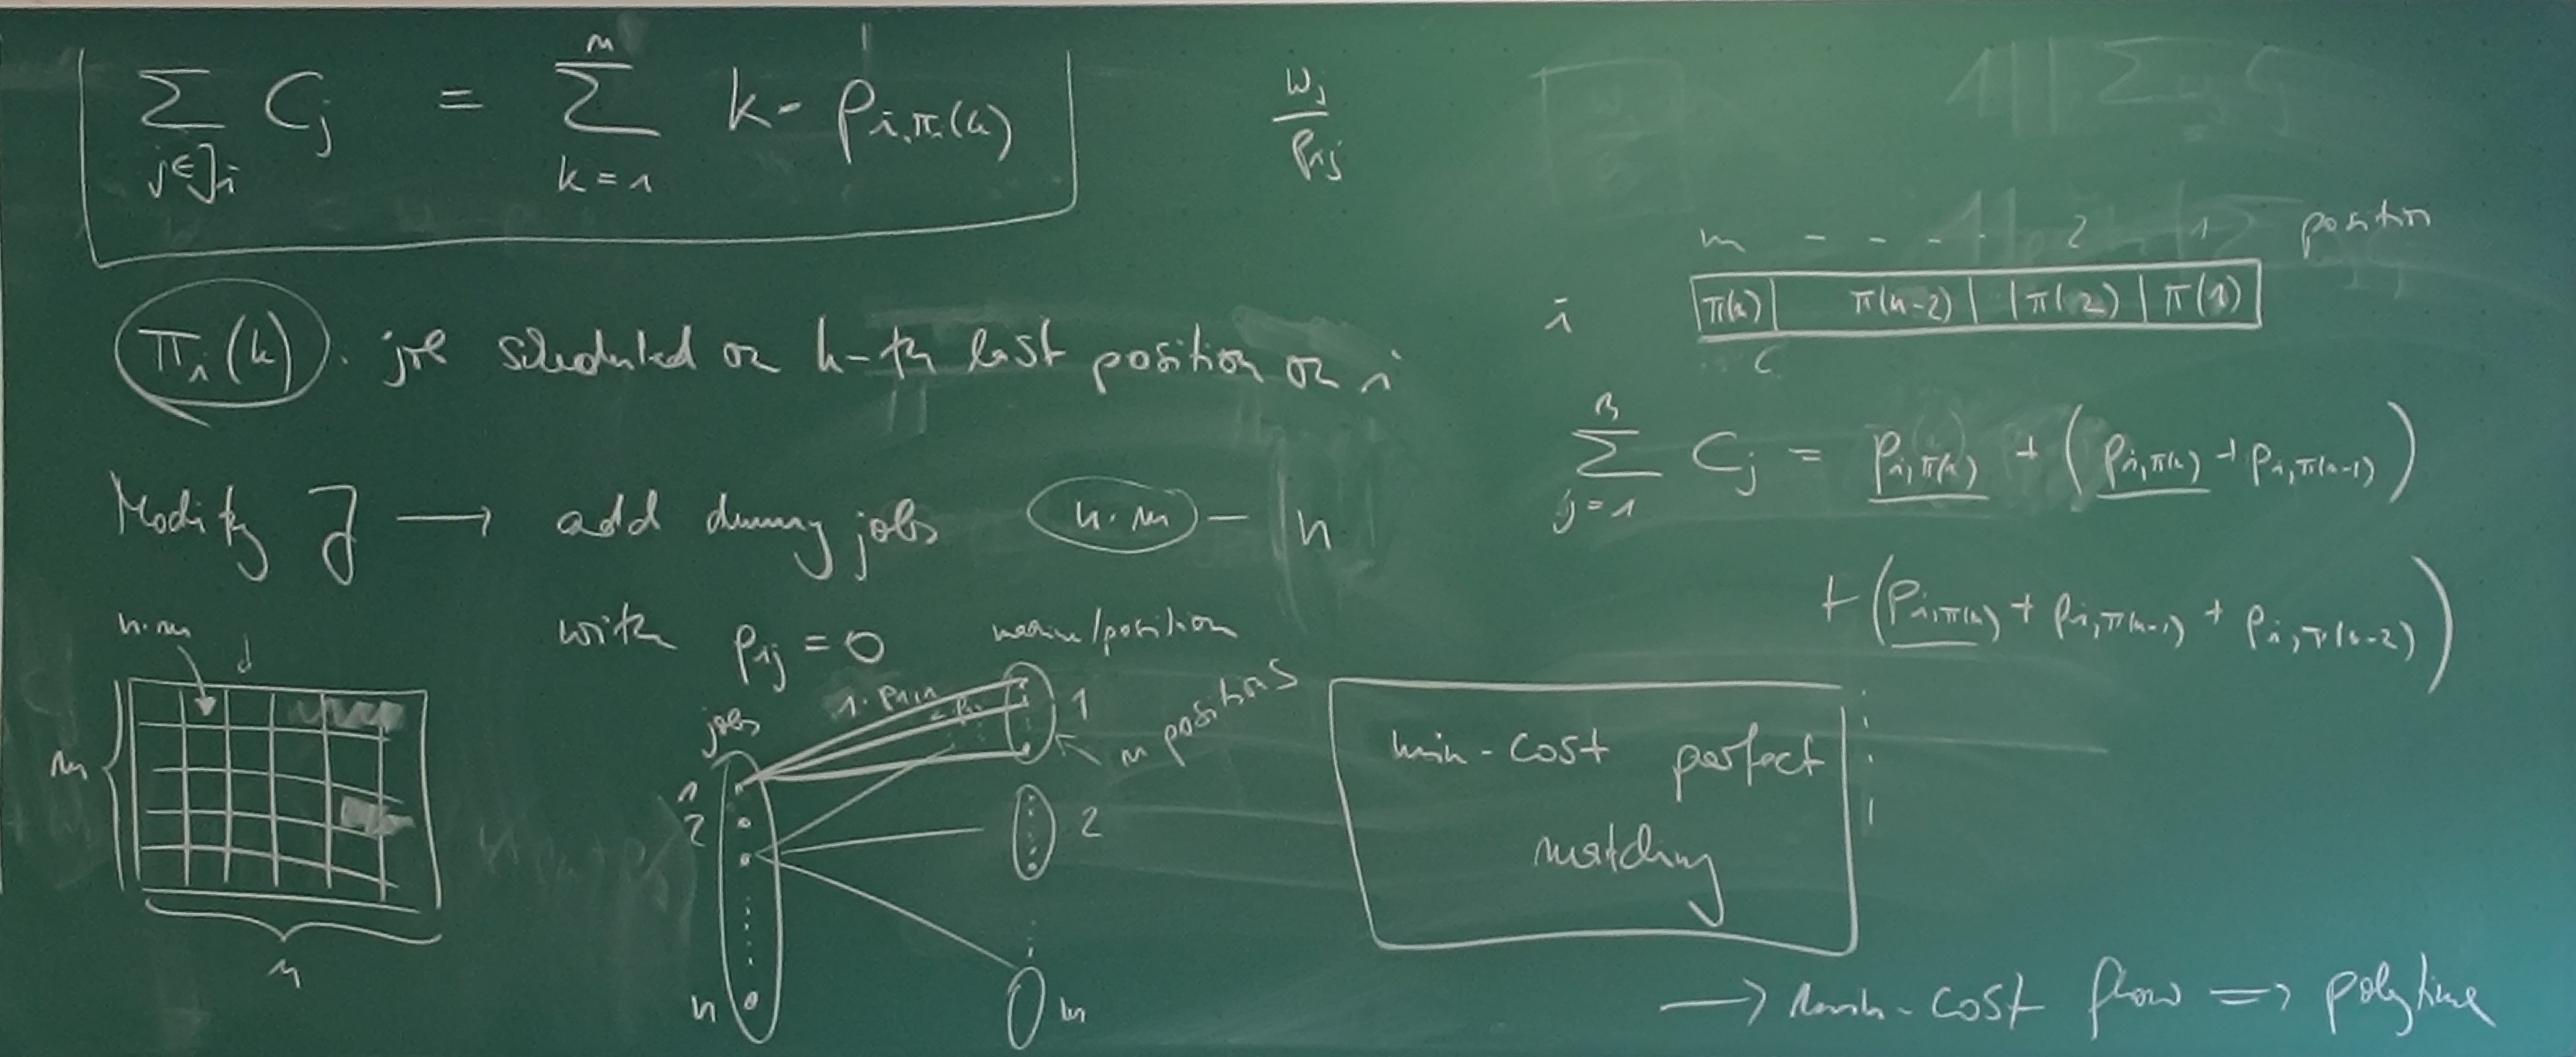 ∑_{j∈J_i} C_j = ∑_{k=1}^{n} k · p_{i,π_i(k)}
w_j / p_{ij}
π_i(k) : job scheduled on k-th last position on i
Modify J → add dummy jobs n·m - n
with p_{ij} = 0
n·m
m
n
jobs
machine/position
1 · p_{11}
1
2
n
1
n positions
2
m
n - - - - 2 1 position
i π(n) π(n-2) π(2) π(1)
C
∑_{j=1}^{n} C_j = p_{i,π(n)} + (p_{i,π(n)} + p_{i,π(n-1)})
+ (p_{i,π(n)} + p_{i,π(n-1)} + p_{i,π(n-2)})
min-cost perfect
matching
→ min-cost flow ⇒ polytime